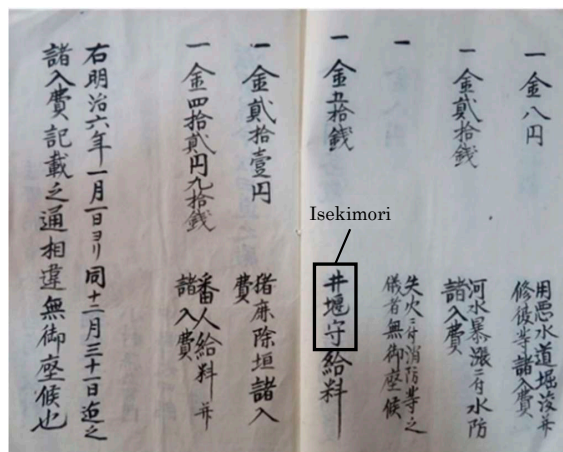 一金八円
用悪水道堀浚并
修復等諸入費
一金貳拾銭
河水暴漲ニ付水防
諸入費
一
失火ニ付消防等之
儀者無御座候
Isekimori
一金五拾銭 井堰守給料
一金貳拾壹円
猪鹿除垣諸入
費
一金四拾貳円九拾銭
番人給料并
諸入費
右明治六年一月一日ヨリ同十二月三十一日迄之
諸入費記載之通相違無御座候也